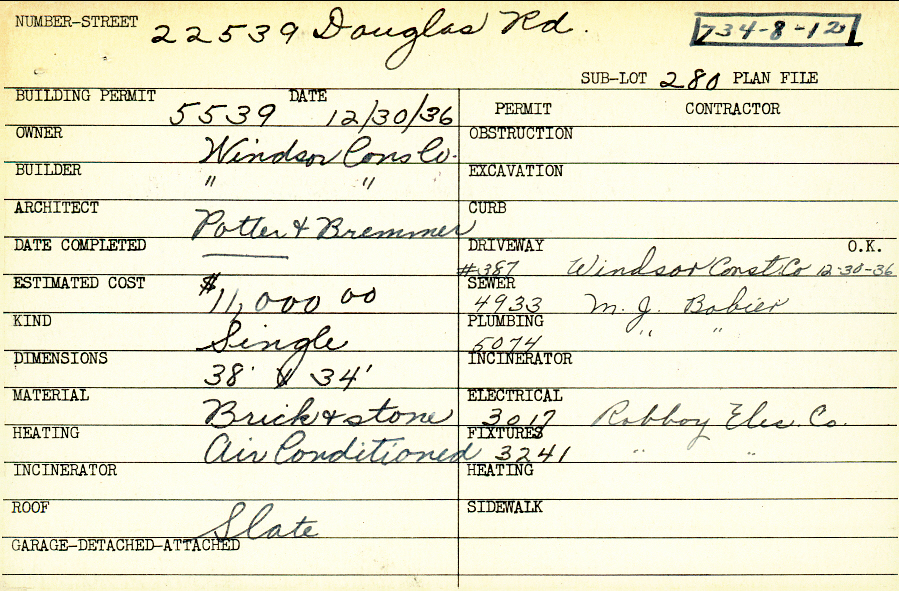 NUMBER-STREET 22539 Douglas Rd. 734-8-12
SUB-LOT 280 PLAN FILE
BUILDING PERMIT 5539 DATE 12/30/36
PERMIT CONTRACTOR
OWNER Windsor Cons Co.
OBSTRUCTION
BUILDER " "
EXCAVATION
ARCHITECT Potter & Bremmer
CURB
DATE COMPLETED
DRIVEWAY #387 Windsor Const Co 12-30-36 O.K.
ESTIMATED COST $11,000 00
SEWER 4933 M. J. Bobier
KIND Single
PLUMBING 5074 " "
DIMENSIONS 38' x 34'
INCINERATOR
MATERIAL Brick & stone
ELECTRICAL 3017 Robboy Elec. Co.
HEATING Air Conditioned
FIXTURES 3241 " "
INCINERATOR
HEATING
ROOF Slate
SIDEWALK
GARAGE-DETACHED-ATTACHED